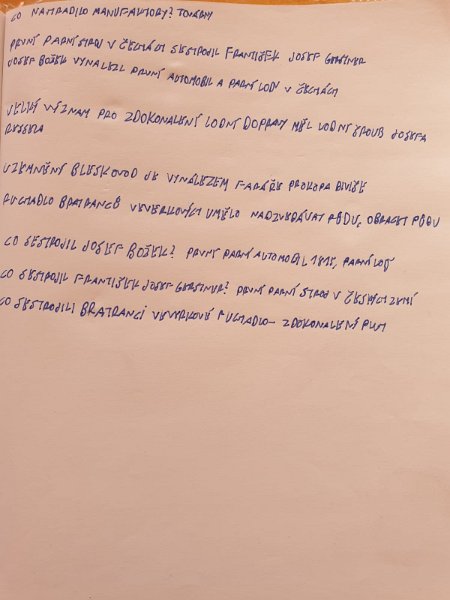 CO NAHRADILO MANUFAKTURY? TOVÁRNY
PRVNÍ PARNÍ STROJ V ČECHÁCH SESTROJIL FRANTIŠEK JOSEF GERSTNER
JOSEF BOŽEK VYNALEZL PRVNÍ AUTOMOBIL A PARNÍ LOĎ V ČECHÁCH
VELKÝ VÝZNAM PRO ZDOKONALENÍ LODNÍ DOPRAVY MĚL LODNÍ ŠROUB JOSEFA
RESSLA
UZEMNĚNÍ BLESKOVOD JE VYNÁLEZEM FARÁŘE PROKOPA DIVIŠE
RUCHADLO BRATRANCŮ VEVERKOVÝCH UMĚLO NADZVEDÁVAT PŮDU, OBRACET PŮDU
CO SESTROJIL JOSEF BOŽEK? PRVNÍ PARNÍ AUTOMOBIL 1815, PARNÍ LOĎ
CO SESTROJIL FRANTIŠEK JOSEF GERSTNER? PRVNÍ PARNÍ STROJ V ČESKÝCH ZEMÍ
CO SESTROJILI BRATRANCI VEVERKOVÉ RUCHADLO - ZDOKONALENÍ PLUH